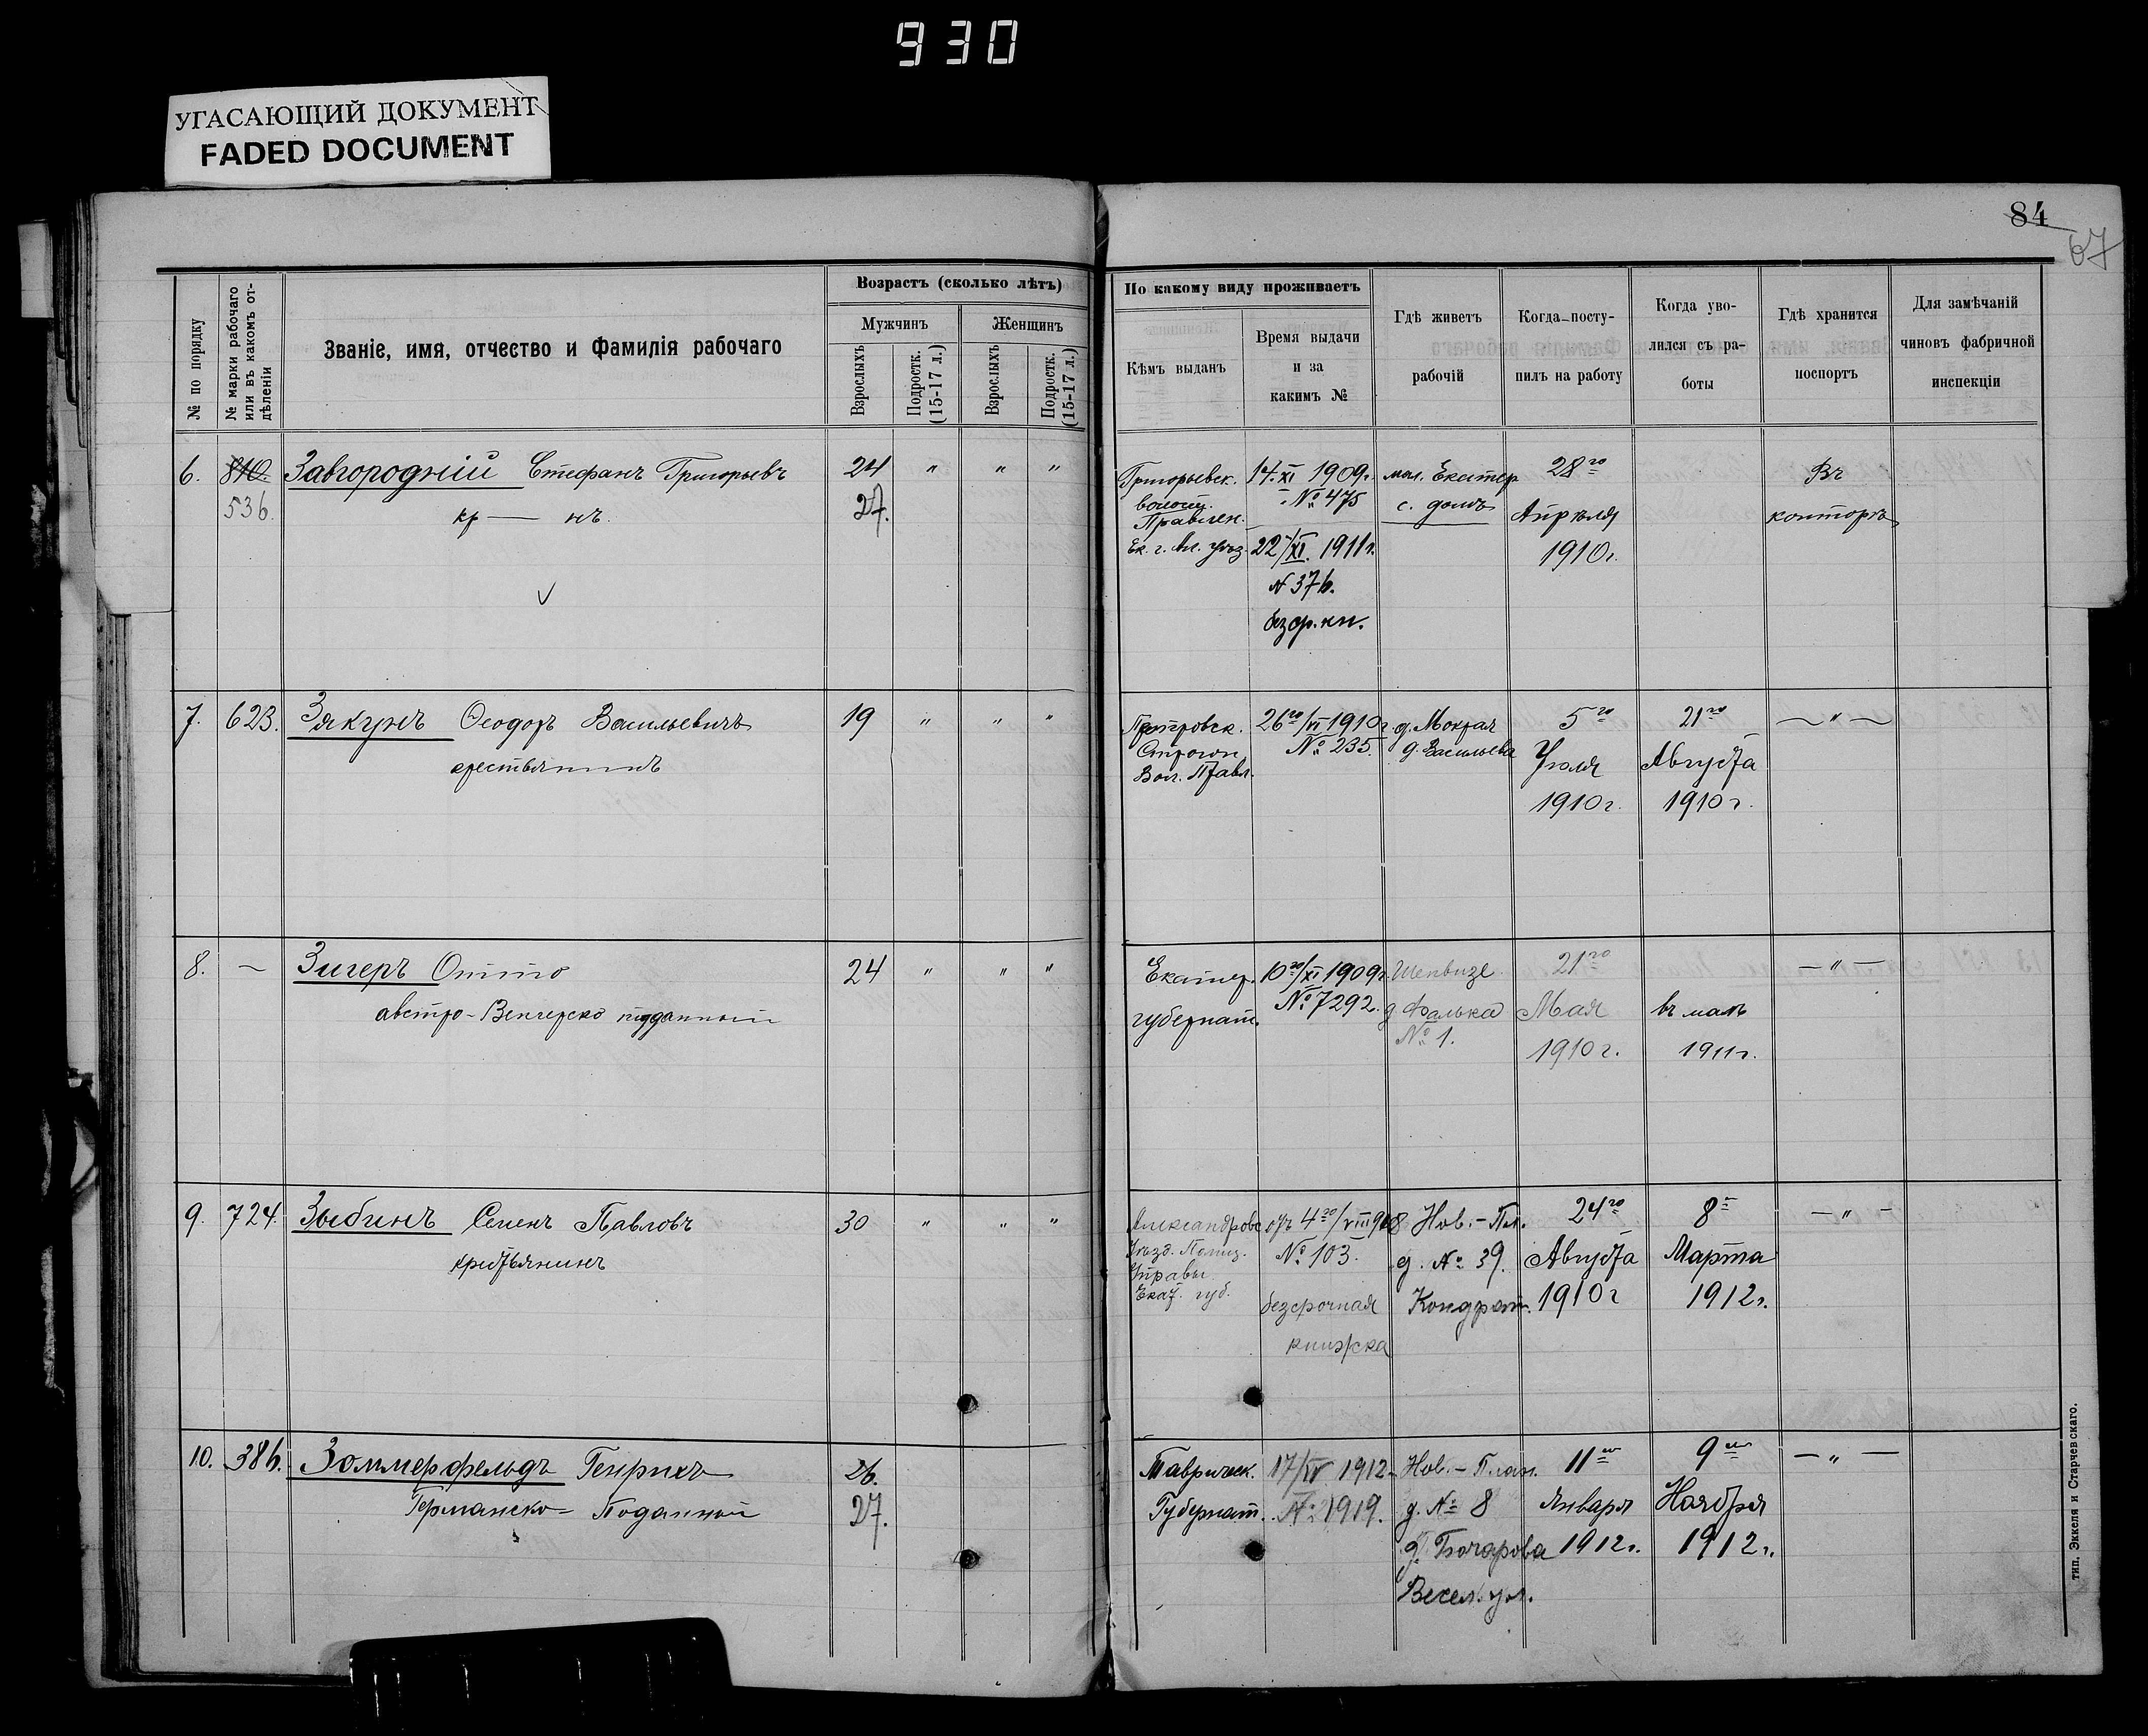 930
УГАСАЮЩИЙ ДОКУМЕНТ
FADED DOCUMENT
84
67
№ по порядку
№ марки рабочаго или въ какомъ отдѣленіи
Званіе, имя, отчество и фамилія рабочаго
Возрастъ (сколько лѣтъ)
Мужчинъ
Женщинъ
Взрослыхъ
Подростк. (15-17 л.)
Взрослыхъ
Подростк. (15-17 л.)
По какому виду проживаетъ
Кѣмъ выданъ
Время выдачи и за какимъ №
Гдѣ живетъ рабочій
Когда посту-
пилъ на работу
Когда уво-
лился съ ра-
боты
Гдѣ хранится
поспортъ
Для замѣчаній
чиновъ фабричной
инспекціи
6. 810. Завгородній Стефанъ Григорьевъ 24 " " "
536 кр — нъ. 27.
Григорьевск.
волостн.
Правлен.
14/XI 1909г.
№ 475
22/XI 1911г.
N 376.
безср. кн.
мал. Екатер
с. домъ
28го
Апрѣля
1910г.
Въ
конторѣ
7. 623. Зякунъ Ѳеодоръ Васильевичъ 19 " " "
крестьянинъ
Вол. Правл.
26го/VI 1910г
№ 235.
д. Мокрая
д. Васильева
5го
Іюля
1910г.
21го
Августа
1910г.
— " —
8. — Зигеръ Отто 24 " " "
австро-Венгерско подданный
Екатер.
губернат.
10го/XI 1909г.
№ 7292.
Шенвизе
д. Фалька
№ 1.
21го
Мая
1910г.
въ маѣ
1911г.
— " —
9. 724. Зыбинъ Семенъ Павловъ 30 " " "
крестьянинъ
Александровс
Уѣзд. Полиц.
Управы
Екат. губ.
отъ 4го/VIII 908
№ 103.
безсрочная
книжка
Нов.-Пл.
д. № 39.
Кондрат.
24го
Августа
1910г
8го
Марта
1912г.
— " —
10. 386. Зоммерфельдъ Генрихъ 26.
Германско-Поданный 27.
Таврическ.
Губернат.
17/IV 1912
№ 1919.
Нов.-План.
д. № 8
д. Бочарова
Весел. ул.
11го
Января
1912г.
9го
Ноября
1912г.
— " —
тип. Эккеля и Старчевскаго.